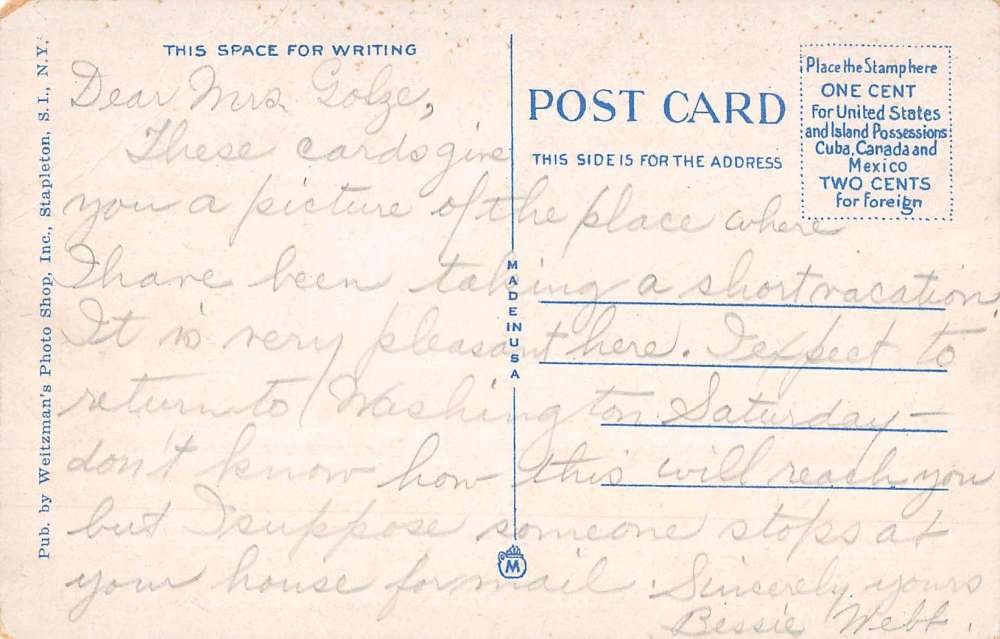 THIS SPACE FOR WRITING
Dear Mrs. Golze,
These cards give
you a picture of the place where
I have been taking a short vacation.
It is very pleasant here. I expect to
return to Washington Saturday —
don't know how this will reach you
but I suppose someone stops at
your house for mail. Sincerely yours
Bessie Webb.
POST CARD
THIS SIDE IS FOR THE ADDRESS
Place the Stamp here
ONE CENT
For United States
and Island Possessions
Cuba, Canada and
Mexico
TWO CENTS
for Foreign
MADE IN USA
M
Pub. by Weitzman's Photo Shop, Inc., Stapleton, S. I., N. Y.